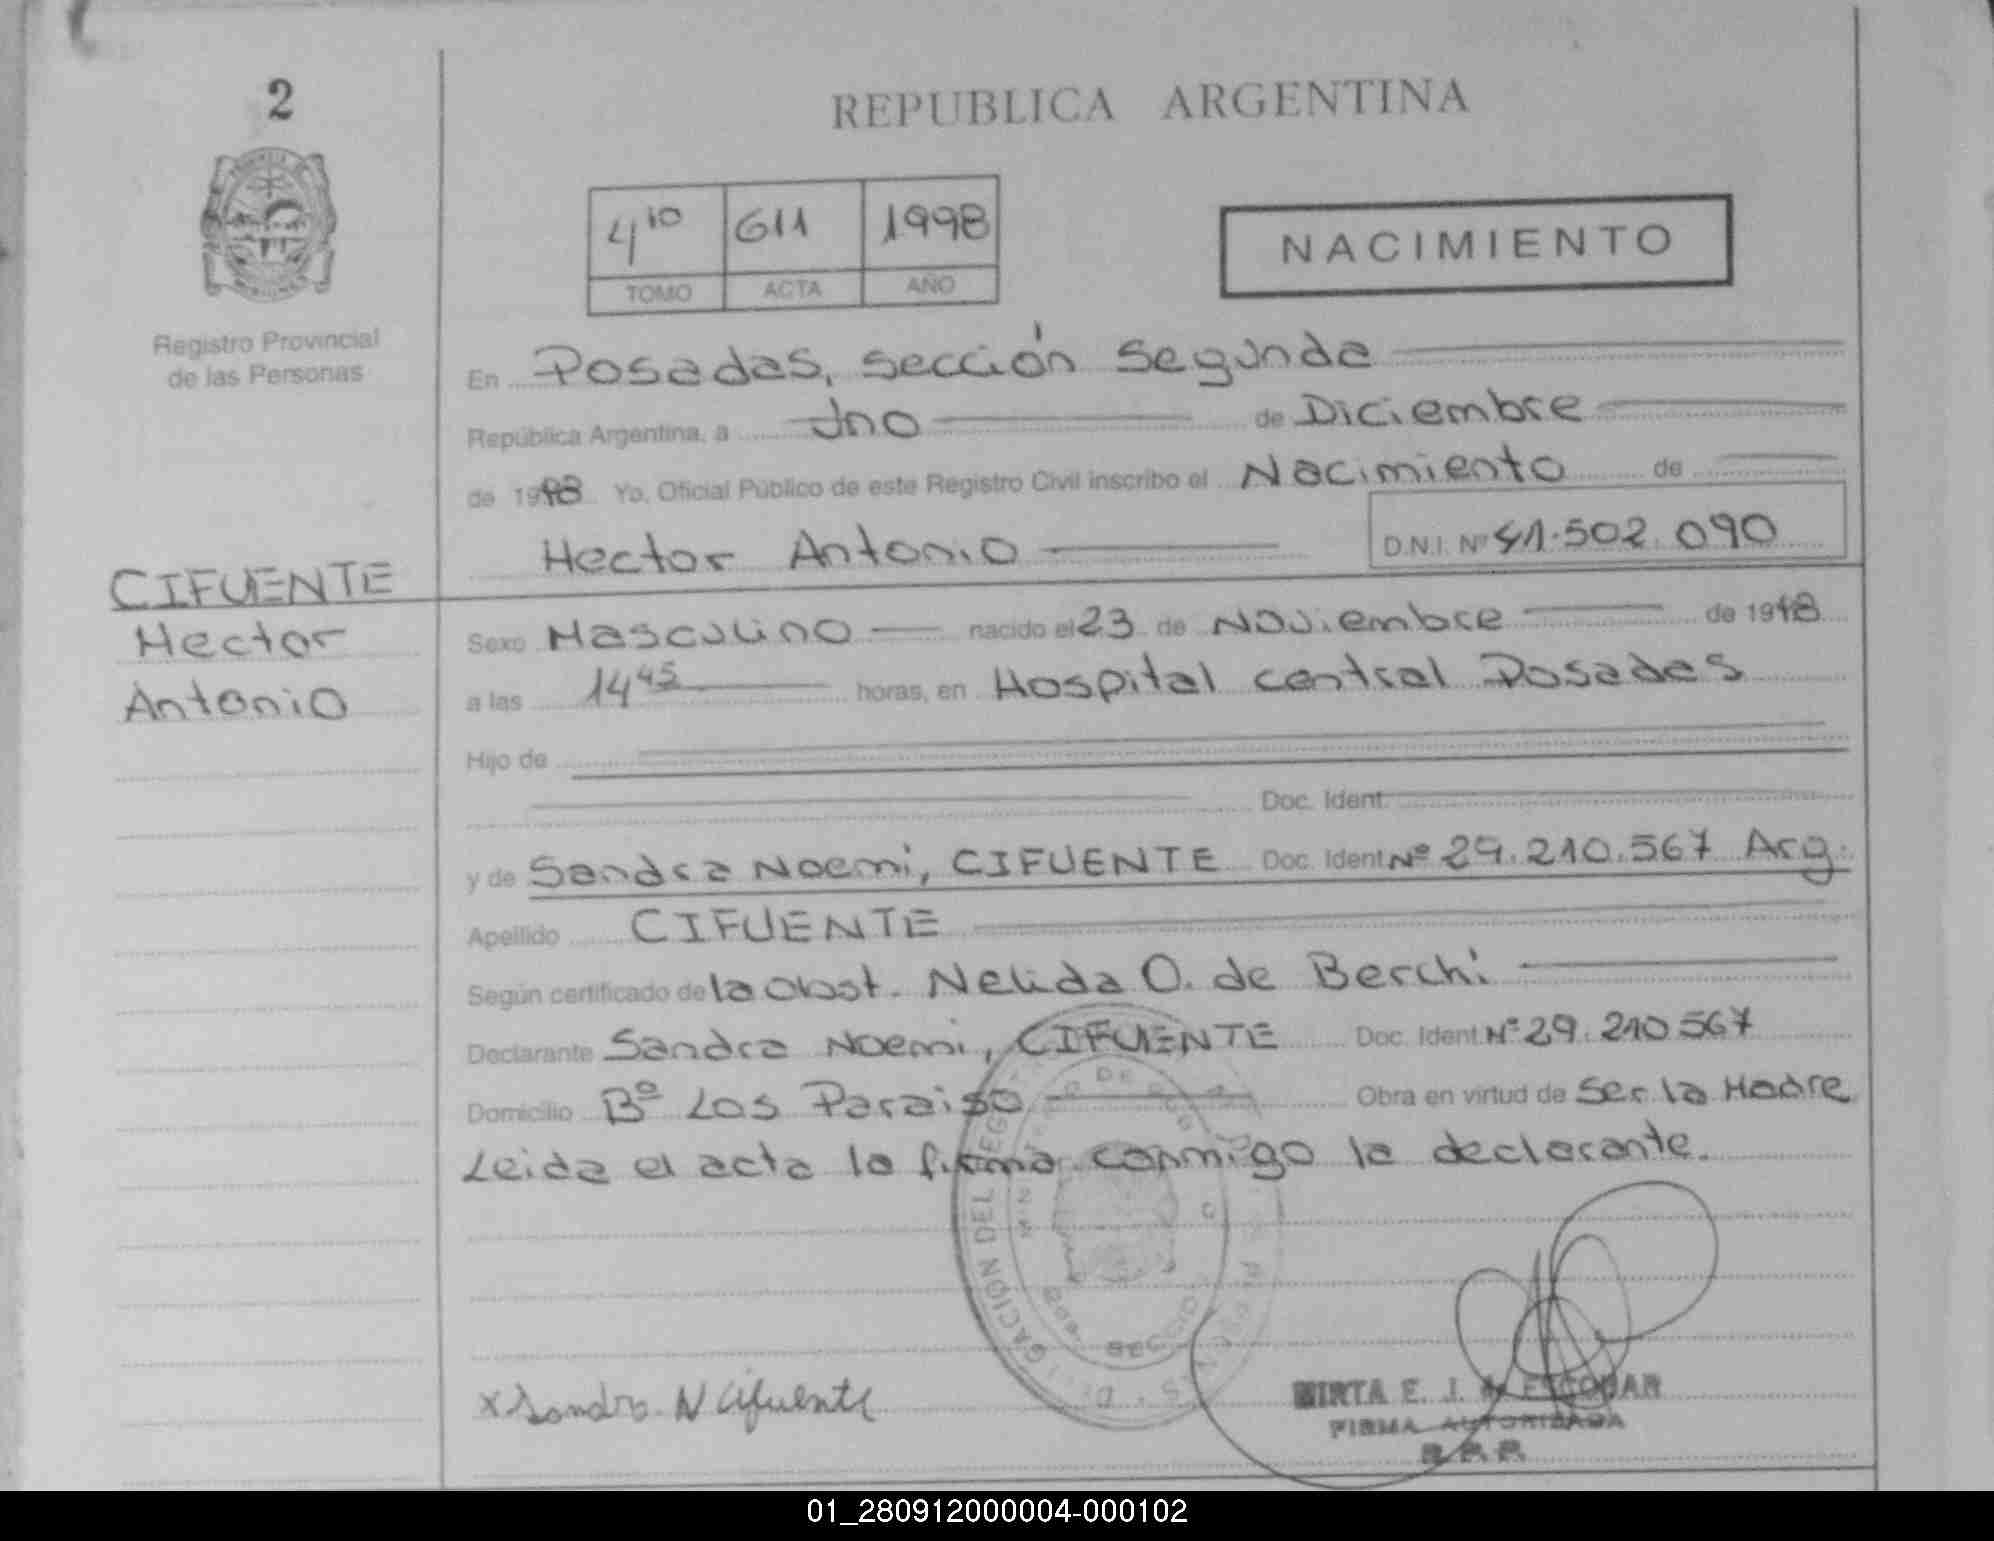 2
REPUBLICA ARGENTINA
4to 611 1998
TOMO ACTA AÑO
NACIMIENTO
Registro Provincial
de las Personas
En Posadas, sección segunda
República Argentina, a uno de Diciembre
de 1998 Yo, Oficial Público de este Registro Civil inscribo el Nacimiento de
Hector Antonio D.N.I. Nº 41.502.090
CIFUENTE
Hector
Antonio
Sexo Masculino nacido el 23 de Noviembre de 1998
a las 14 45 horas, en Hospital central Posadas
Hijo de
Doc. Ident.
y de Sandra Noemi, CIFUENTE Doc. Ident Nº 29.210.567 Arg.
Apellido CIFUENTE
Según certificado de la Obst. Nelida O. de Berchi
Declarante Sandra Noemi, CIFUENTE Doc. Ident. Nº 29.210.567
Domicilio Bº Los Paraiso Obra en virtud de Ser la Madre
Leida el acta la firma conmigo la declarante.
DELEGACION DEL REG
SECCION 2a
x Sandra N Cifuente
MIRTA E. J. de ESCOBAR
FIRMA AUTORIZADA
R.P.P.
01_280912000004-000102